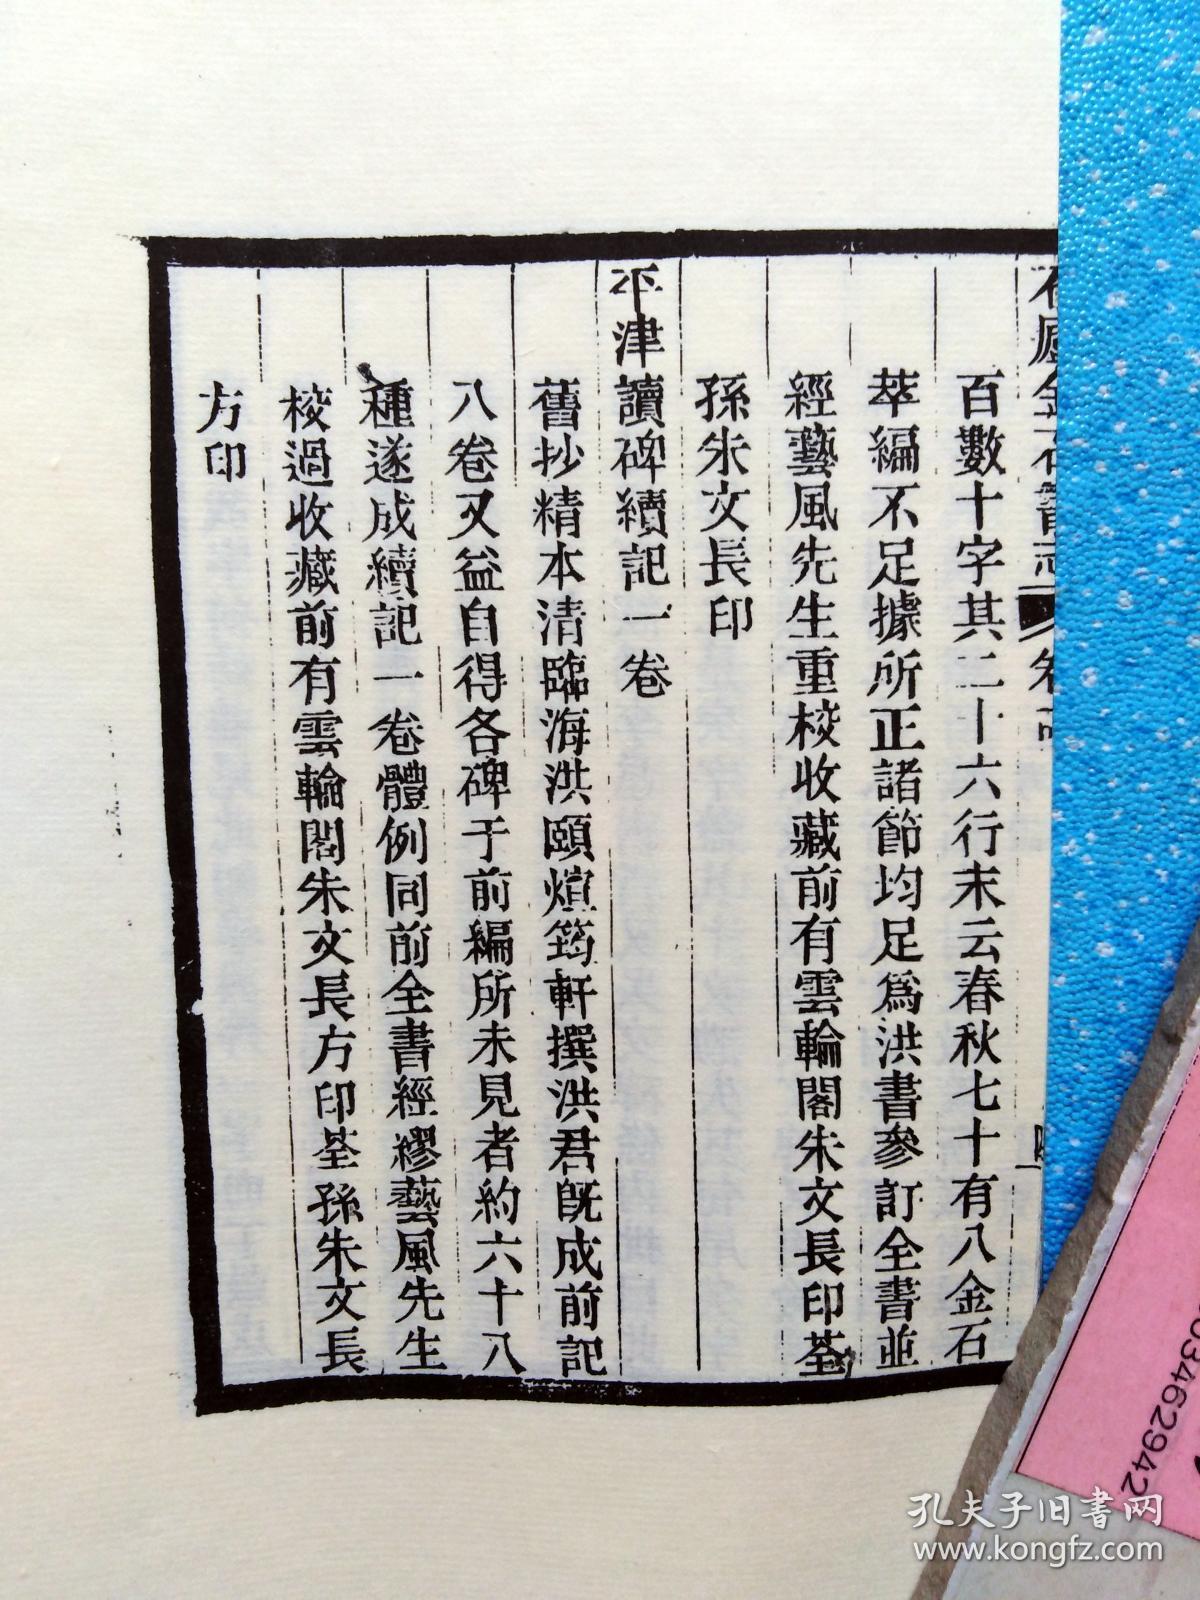 石廬金石書志 卷
百數十字其二十六行末云春秋七十有八金石
萃編不足據所正諸節均足爲洪書參訂全書並
經藝風先生重校收藏前有雲輪閣朱文長印荃
孫朱文長印
平津讀碑續記一卷
舊抄精本清臨海洪頤煊筠軒撰洪君旣成前記
八卷又益自得各碑于前編所未見者約六十八
種遂成續記一卷體例同前全書經繆藝風先生
校過收藏前有雲輪閣朱文長方印荃孫朱文長
方印
03462942
孔夫子旧书网
www.kongfz.com